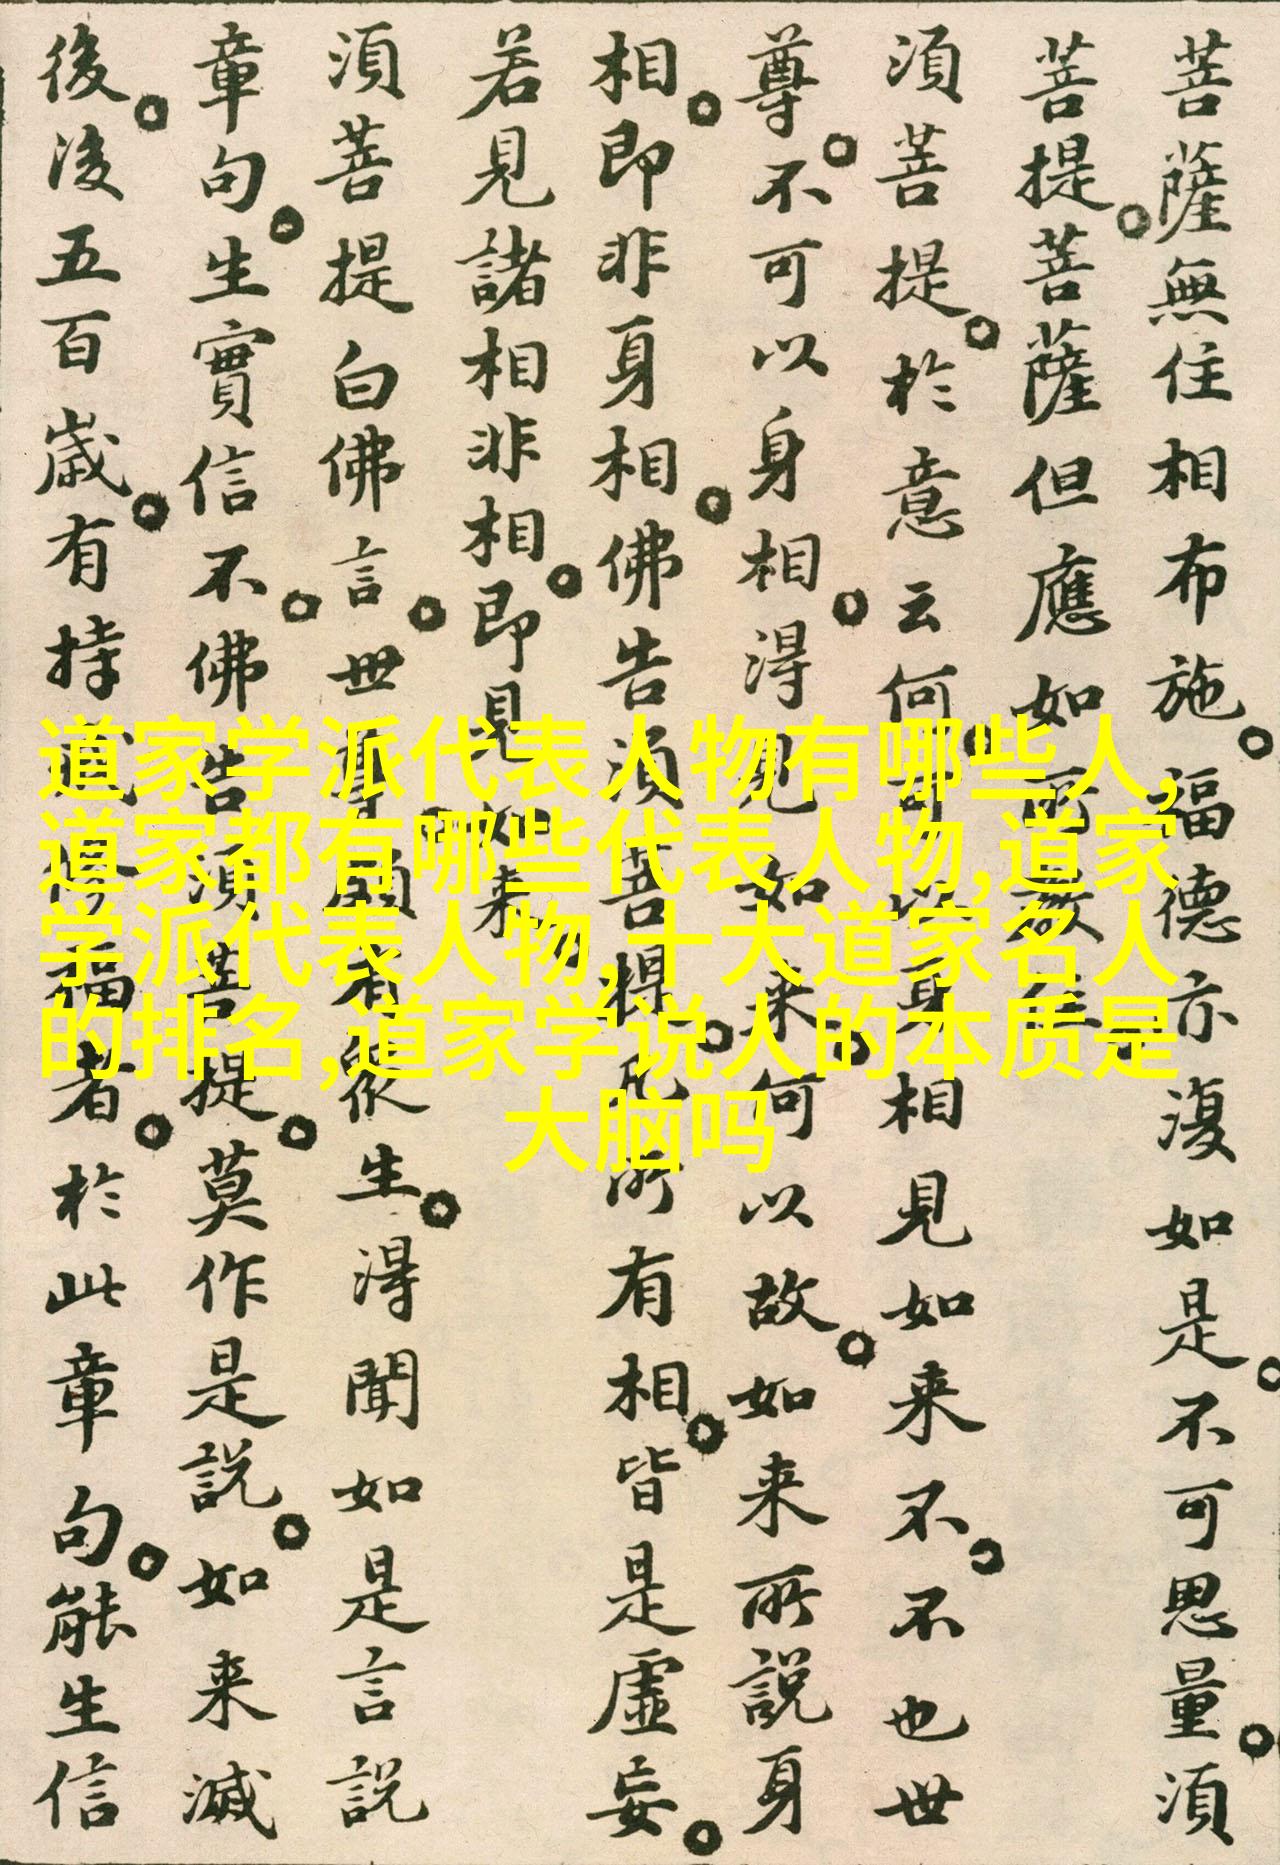 菩薩無住相布施。福德亦復如是。不可思量。須
菩提。菩薩但應如所教住。
須菩提。於意云何。可以身相見如来不。不也世
尊。不可以身相。得見如来。何以故。如来所說身
相。即非身相。佛告須菩提。凡所有相。皆是虛妄。
若見諸相非相。即見如来
須菩提白佛言。世尊。頗有衆生。得聞如是言說
章句。生實信不。佛告須菩提。莫作是說。如来滅
後。後五百歲。有持戒修福者。於此章句。能生信
道家学派代表人物有哪些人,
道家都有哪些代表人物,道家
学派代表人物,十大道家名人
的排名,道家学说人的本质是
大脑吗